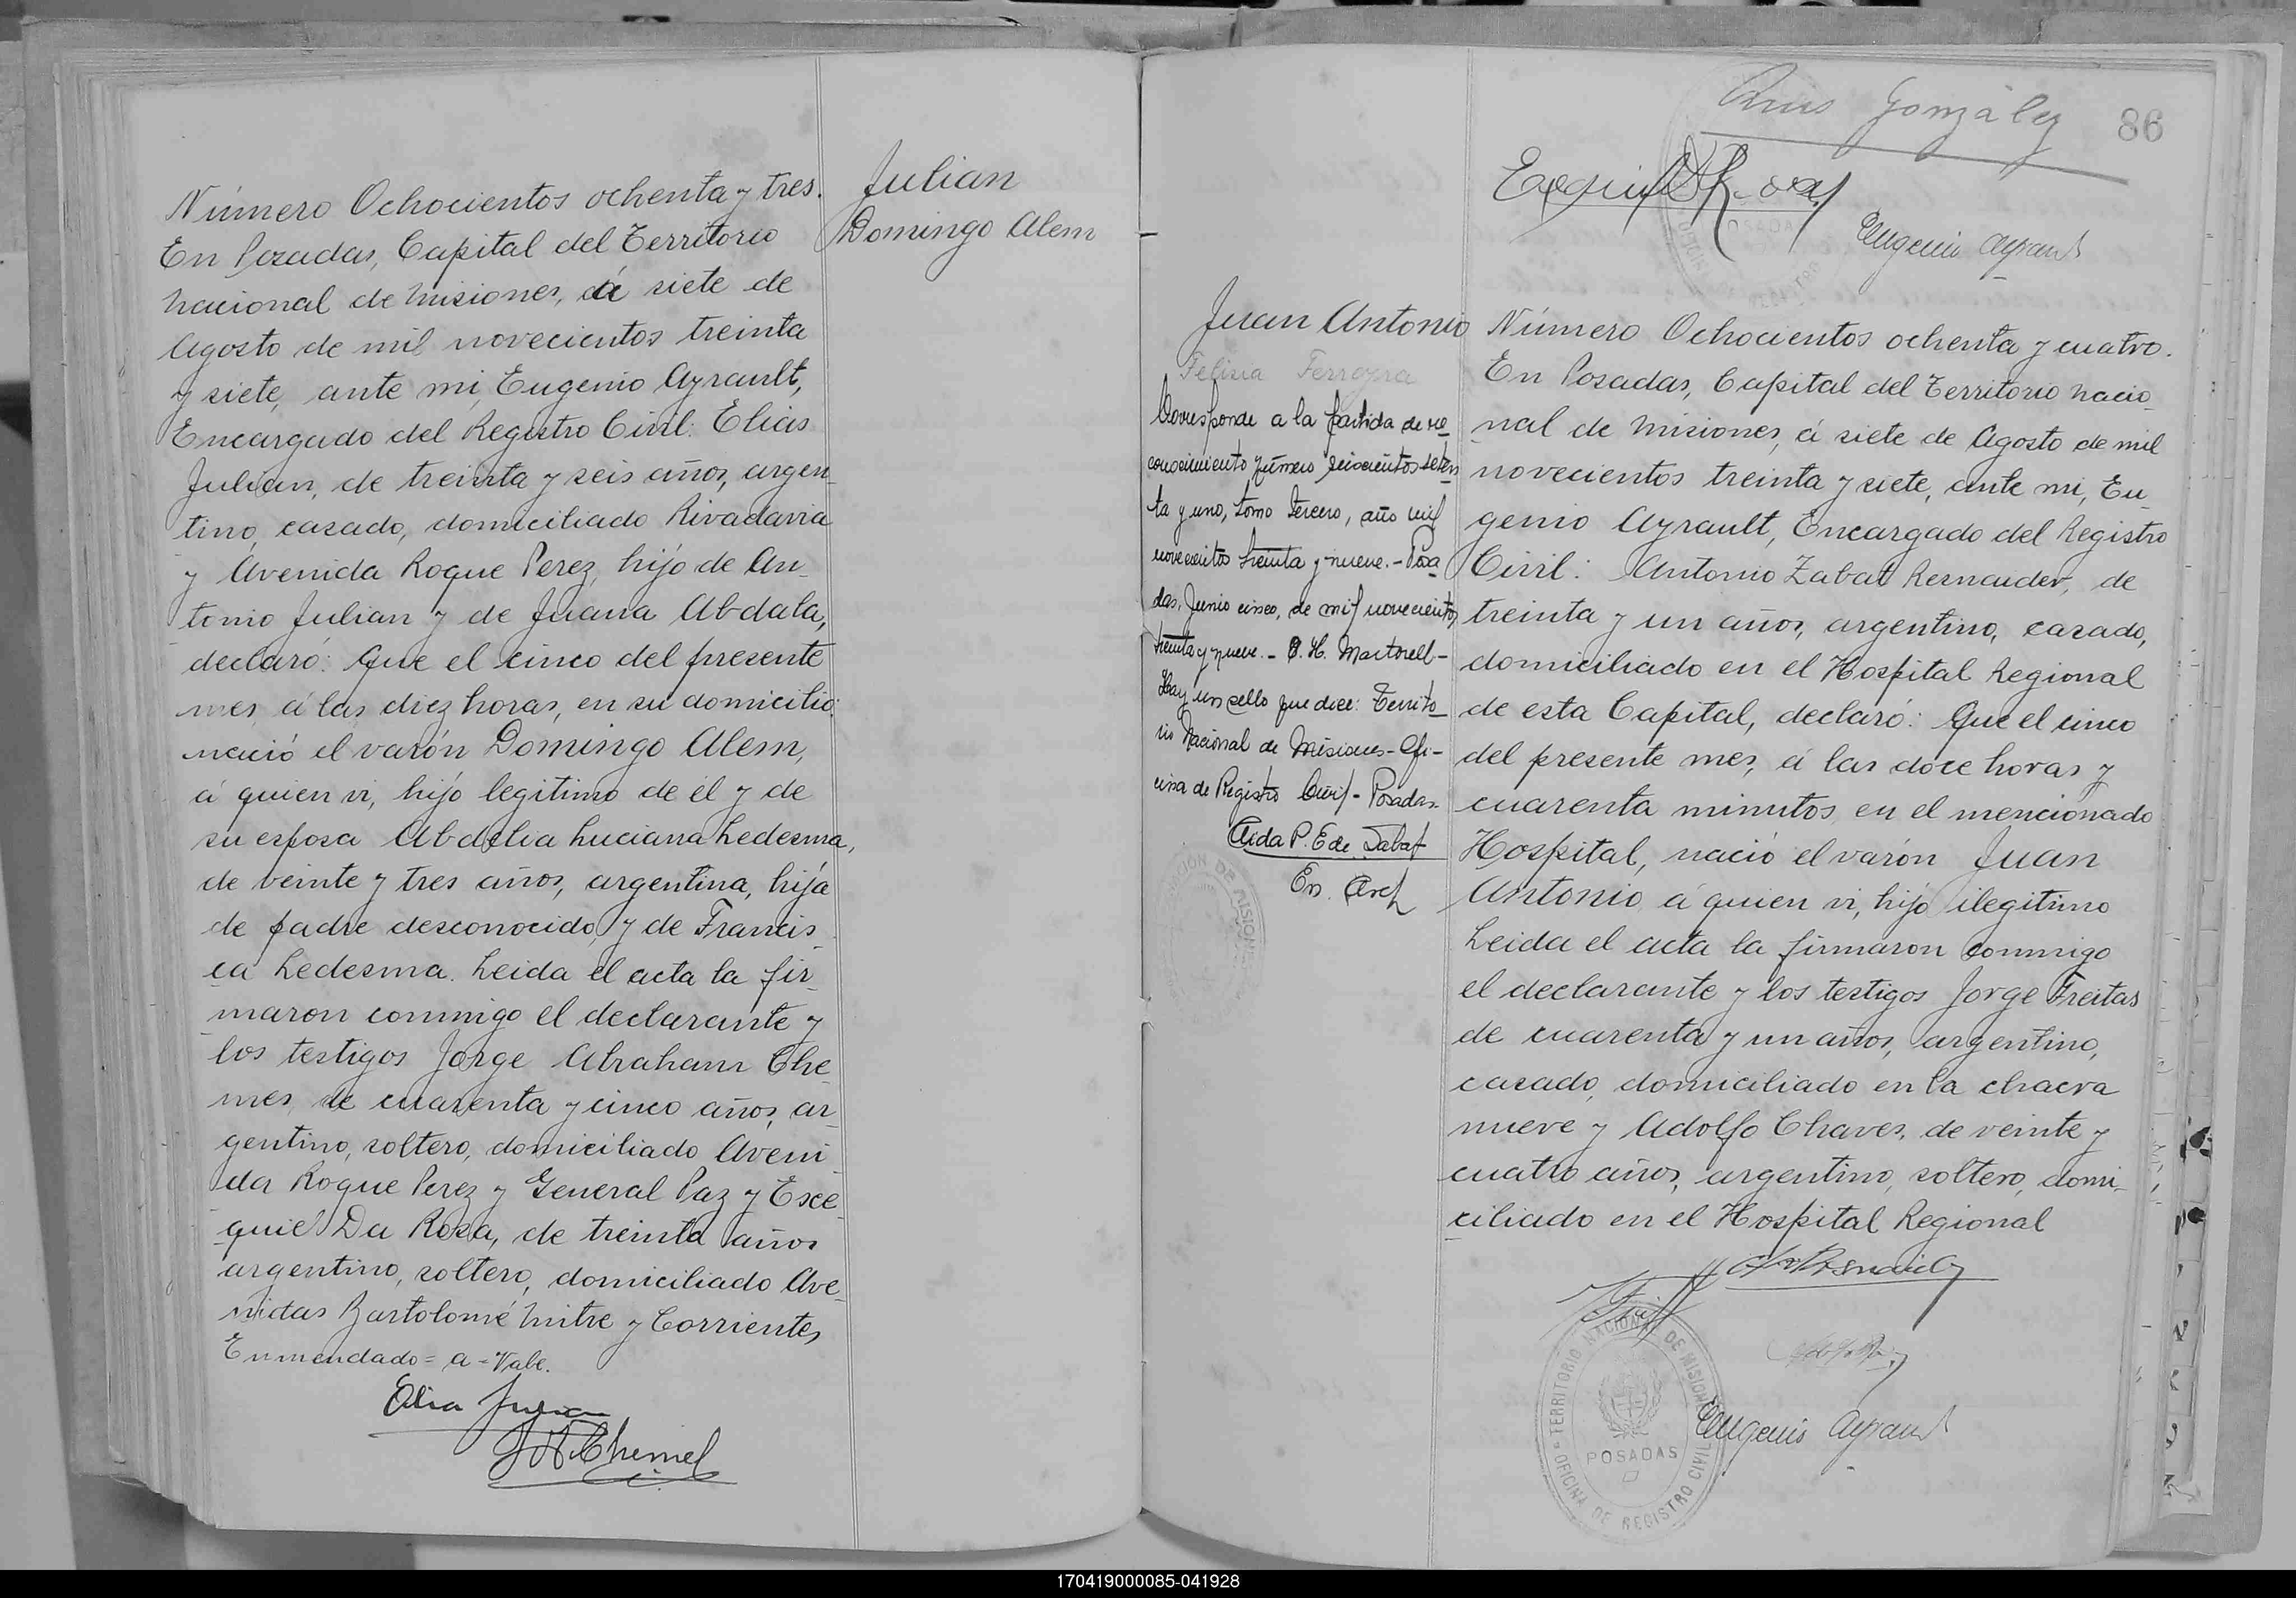 Julian
Domingo Alem
Número Ochocientos ochenta y tres.
En Posadas, Capital del Territorio
Nacional de Misiones, á siete de
Agosto de mil novecientos treinta
y siete, ante mi, Eugenio Ayrault,
Encargado del Registro Civil: Elias
Julian, de treinta y seis años, argen_
tino, casado, domiciliado Rivadavia
y Avenida Roque Perez, hijo de An_
tonio Julian y de Juana Abdala,
declaró: Que el cinco del presente
mes á las diez horas, en su domicilio
nació el varón Domingo Alem,
á quien vi, hijo legitimo de él y de
su esposa Abdelia Luciana Ledesma,
de veinte y tres años, argentina, hija
de padre desconocido y de Francis_
ca Ledesma. Leida el acta la fir_
maron conmigo el declarante y
los testigos Jorge Abraham Che_
mes, de cuarenta y cinco años, ar_
gentino, soltero, domiciliado Aveni_
da Roque Perez y General Paz y Exe_
quiel Da Rosa, de treinta años
argentino, soltero, domiciliado Ave_
nidas Bartolomé Mitre y Corrientes
Enmendado = a = Vale.
Elia Julian
J A Chemel
González
86
Eugenio Ayrault
Juan Antonio
Felisia Ferreyra
Corresponde a la partida de re_
conocimiento número seiscientos seten
ta y uno, tomo tercero, año mil
novecientos treinta y nueve. - Posa
das, Junio cinco, de mil novecientos
treinta y nueve. - H. Martorell -
Hay un sello que dice: Territo_
rio Nacional de Misiones - Ofi-
cina de Registro Civil - Posadas.
Aida P. E de Sabat
En. Arch
Número Ochocientos ochenta y cuatro.
En Posadas, Capital del Territorio Nacio_
nal de Misiones, á siete de Agosto de mil
novecientos treinta y siete, ante mi, Eu_
genio Ayrault, Encargado del Registro
Civil: Antonio Zabat Resnauder, de
treinta y un años, argentino, casado,
domiciliado en el Hospital Regional
de esta Capital, declaró: Que el cinco
del presente mes, á las doce horas y
cuarenta minutos en el mencionado
Hospital, nació el varón Juan
Antonio á quien vi, hijo ilegitimo
Leida el acta la firmaron conmigo
el declarante y los testigos Jorge Freitas
de cuarenta y un años, argentino,
casado, domiciliado en la chacra
nueve y Adolfo Chaves, de veinte y
cuatro años, argentino, soltero, domi_
ciliado en el Hospital Regional
TERRITORIO NACIONAL DE MISIONES
POSADAS
OFICINA DE REGISTRO CIVIL
Eugenio Ayrault
170419000085-041928